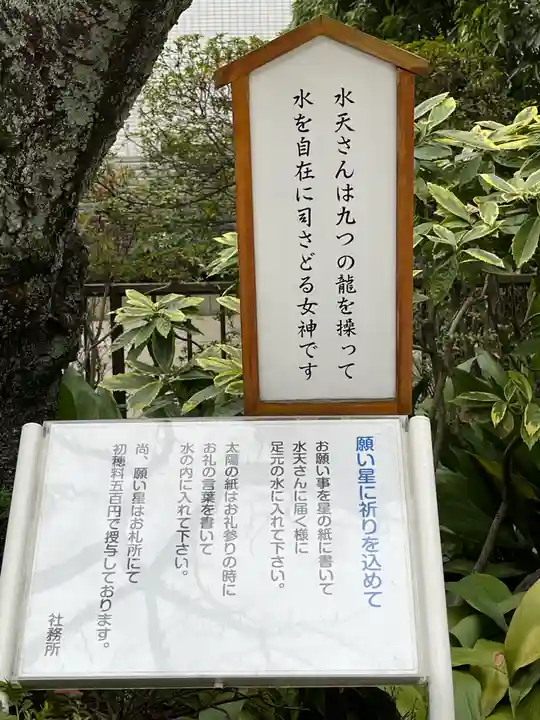 水天さんは九つの龍を操って
水を自在に司さどる女神です
願い星に祈りを込めて
お願い事を星の紙に書いて
水天さんに届く様に
足元の水に入れて下さい。
太陽の紙はお礼参りの時に
お礼の言葉を書いて
水の内に入れて下さい。
尚、願い星はお札所にて
初穂料五百円で授与しております。
社務所